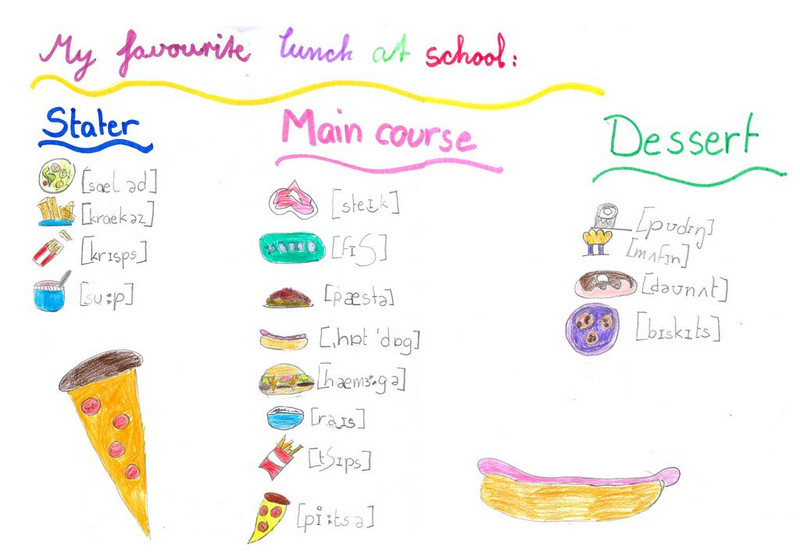 My favourite lunch at school:
Stater
[sael əd]
[kraekəz]
[krɪsps]
[su:p]
Main course
[steɪk]
[fɪʃ]
[pæstə]
[ˌhɒt 'dɒg]
[haemɜ:gə]
[raɪs]
[tʃɪps]
[pi:tsə]
Dessert
[pudɪŋ]
[mʌfɪn]
[dəʊnʌt]
[bɪskɪts]